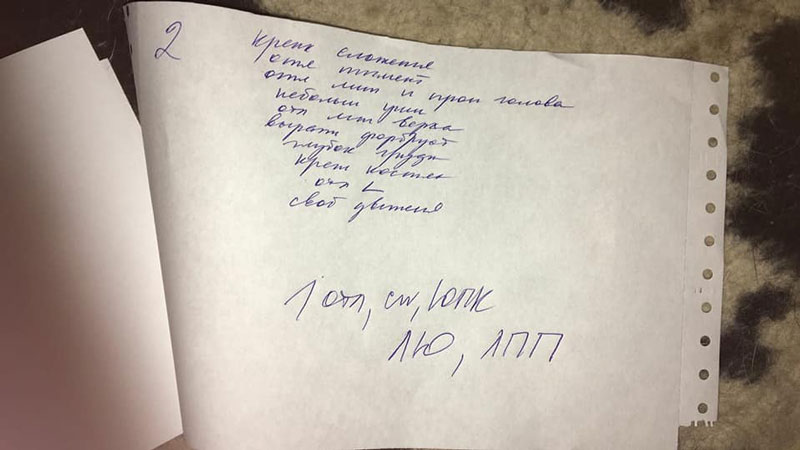 2
Крепк сложения
отл пигмент
отл лин и проп голова
небольш уши
отл лин верха
выраж форбруст
глубок груди
креп костяк
отл L
своб движения
1 отл, cw, ЮПК
ЛЮ, ЛПП